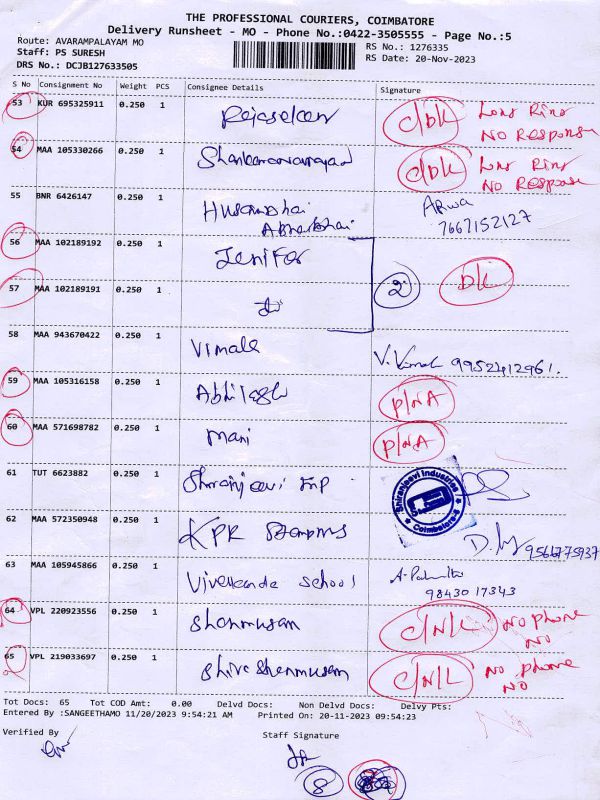 THE PROFESSIONAL COURIERS, COIMBATORE
Delivery Runsheet - MO - Phone No.:0422-3505555 - Page No.:5
Route: AVARAMPALAYAM MO RS No.: 1276335
Staff: PS SURESH RS Date: 20-Nov-2023
DRS No.: DCJB127633505
S No Consignment No Weight PCS Consignee Details Signature
53 KUR 695325911 0.250 1 C/DK Long Ring
No Response
54 MAA 105330266 0.250 1 Shankaranarayanan C/DK Long Ring
No Response
55 BNR 6426147 0.250 1 Husainbhai Arwa
7667152127
56 MAA 102189192 0.250 1 Jenifer
57 MAA 102189191 0.250 1 2 DK
58 MAA 943670422 0.250 1 Vimala V. Vimal 9952412961.
59 MAA 105316158 0.250 1 Abhilash P/NA
60 MAA 571698782 0.250 1 Mani P/NA
61 TUT 6623882 0.250 1 Shiranjeevi Inp Shiranjeevi Industries Coimbatore-6
62 MAA 572350948 0.250 1 KPR 9566775937
63 MAA 105945866 0.250 1 Vivekanda School
9843017343
64 VPL 220923556 0.250 1 Shanmugam C/N/L No Phone
No
65 VPL 219033697 0.250 1 Shiva Shanmugam C/N/L No Phone
No
Tot Docs: 65 Tot COD Amt: 0.00 Delvd Docs: Non Delvd Docs: Delvy Pts:
Entered By :SANGEETHAMO 11/20/2023 9:54:21 AM Printed On: 20-11-2023 09:54:23
Verified By Staff Signature
8